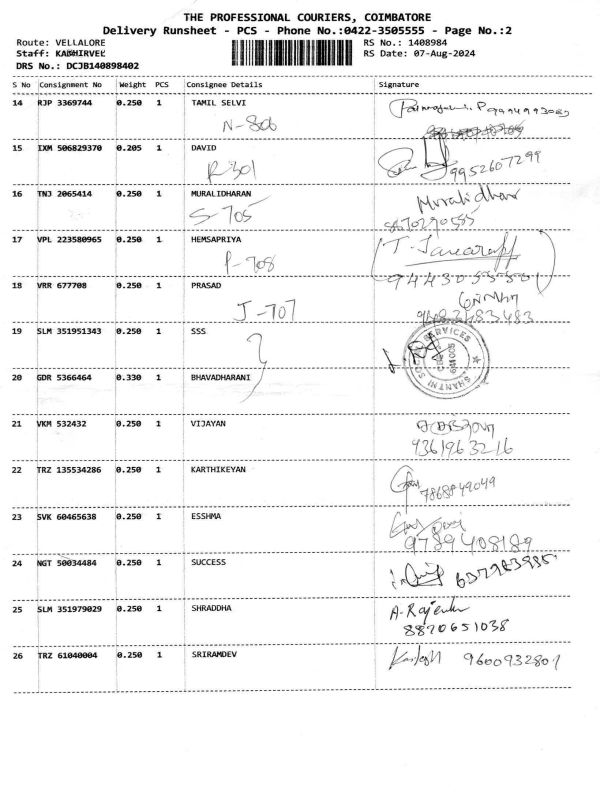 THE PROFESSIONAL COURIERS, COIMBATORE
Delivery Runsheet - PCS - Phone No.:0422-3505555 - Page No.:2
Route: VELLALORE RS No.: 1408984
Staff: KADHIRVEL RS Date: 07-Aug-2024
DRS No.: DCJB140898402
S No Consignment No Weight PCS Consignee Details Signature
14 RJP 3369744 0.250 1 TAMIL SELVI
N-806
15 IXM 506829370 0.205 1 DAVID
R 301 9952607299
16 TNJ 2065414 0.250 1 MURALIDHARAN Muralidhar
S-705 8870290555
17 VPL 223580965 0.250 1 HEMSAPRIYA
P-708
18 VRR 677708 0.250 1 PRASAD
J-707 9483483483
19 SLM 351951343 0.250 1 SSS
SERVICES
641005
20 GDR 5366464 0.330 1 BHAVADHARANI
21 VKM 532432 0.250 1 VIJAYAN
9361963216
22 TRZ 135534286 0.250 1 KARTHIKEYAN
7868849049
23 SVK 60465638 0.250 1 ESSHMA
9789408189
24 NGT 50034484 0.250 1 SUCCESS
25 SLM 351979029 0.250 1 SHRADDHA A-Rajendr
8870651038
26 TRZ 61040004 0.250 1 SRIRAMDEV 9600932801